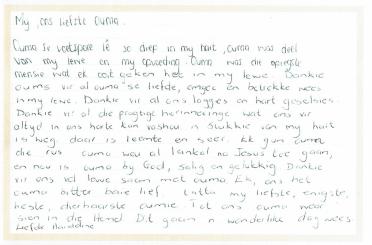 My, ons liefste Ouma.
Ouma se voetspore lê so diep in my hart, ouma was deel
van my lewe en my opvoeding. Ouma was die opregste
mensie wat ek ooit geken het in my lewe. Dankie
ouma vir al ouma se liefde, omgee en betrokke wees
in my lewe. Dankie vir al ons lagges en hart geselsies.
Dankie vir al die pragtige herinneringe wat ons vir
altyd in ons harte kan vashou. 'n Stukkie van my hart
is weg, daar is leemte en seer. Ek gun ouma
die rus, ouma wou al lankal na Jesus toe gaan,
en nou is ouma by God, salig en gelukkig. Dankie
vir ons vol lewe saam met ouma. Ek, ons het
ouma bitter baie lief. Tatta my liefste, enigste,
beste, dierbaarste oumie. Tot ons ouma weer
sien in die Hemel. Dit gaan 'n wonderlike dag wees.
Liefde